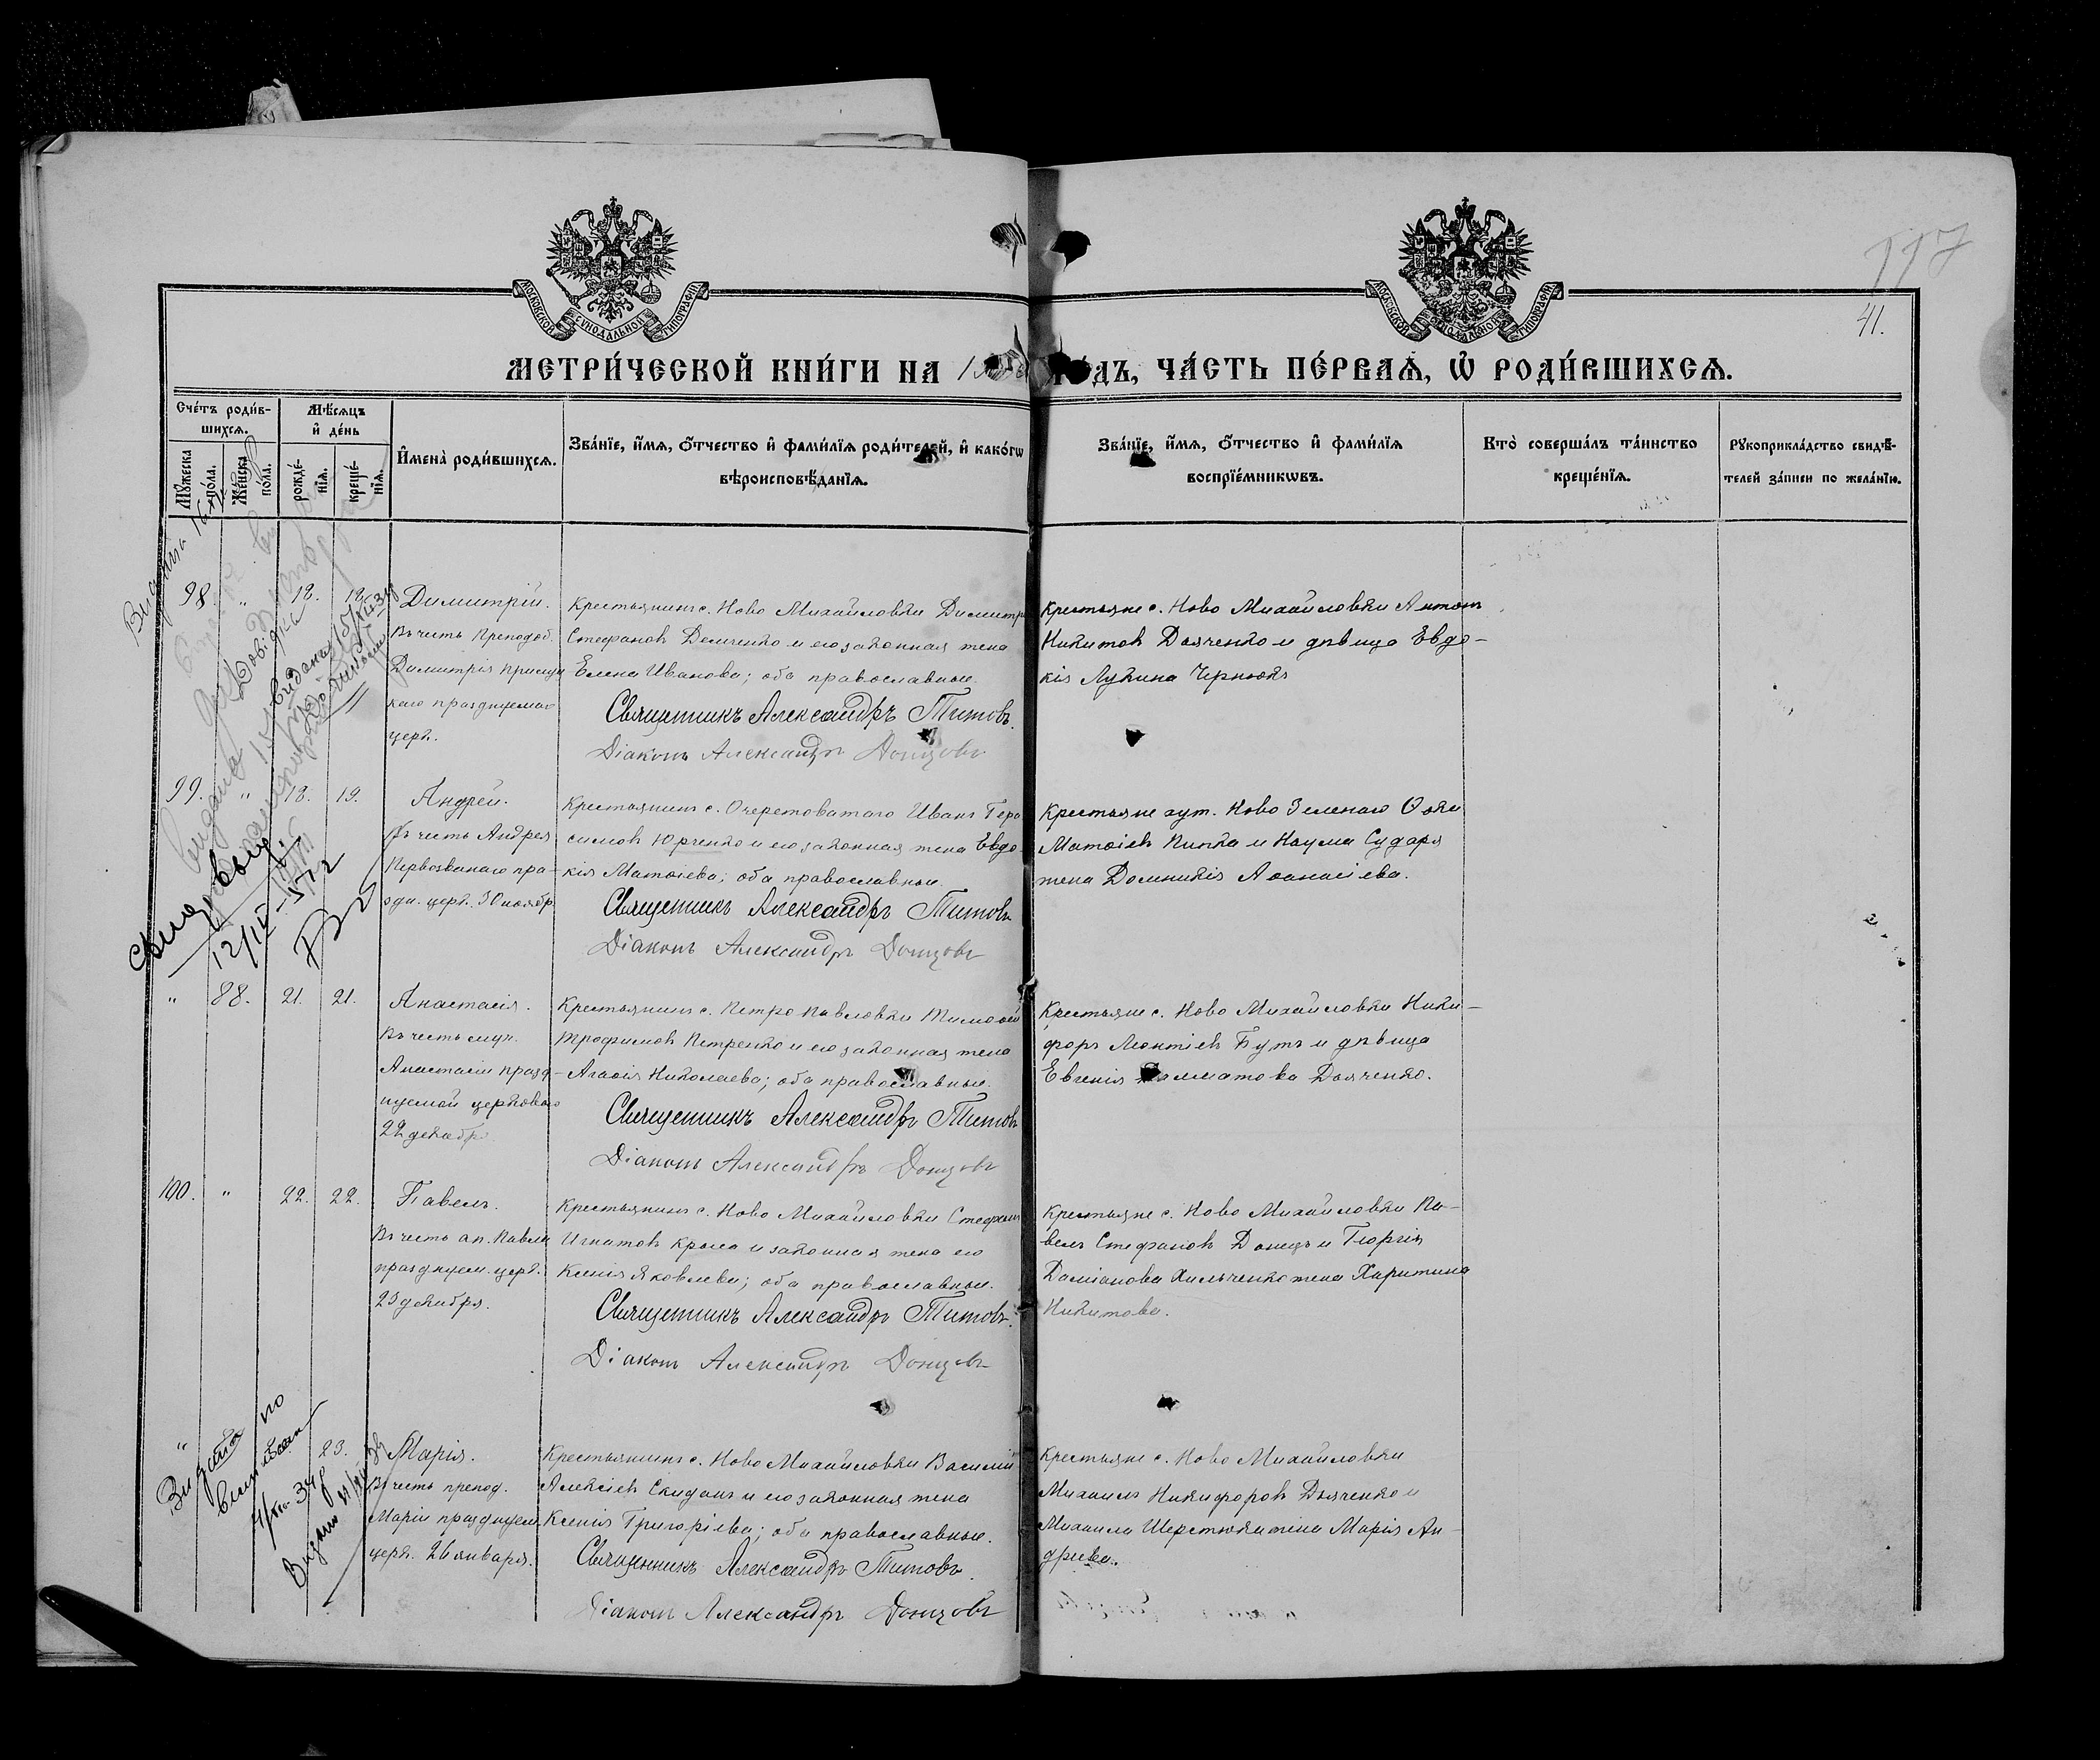 117
41.
МОСКОВСКОЙ СѴНОДАЛЬНОЙ ТИПОГРАФІИ
МОСКОВСКОЙ СѴНОДАЛЬНОЙ ТИПОГРАФІИ
МЕТРИ́ЧЕСКОЙ КНИ́ГИ НА 1 ГО́ДЪ, ЧА́СТЬ ПЕ́РВАѦ, Ѡ҆ РОДИ́ВШИХСѦ.
Сче́тъ роди́в-
шихсѧ.
Мѣ́сѧцъ
и҆ де́нь
Мꙋжеска
по́ла.
Же́нска
по́ла.
рожде́-
нїѧ.
креще́-
нїѧ.
И҆мена̀ роди́вшихсѧ.
Зва́нїе, и҆́мѧ, ѻ҆́тчество и҆ фами́лїѧ роди́телей, и҆ како́гѡ
вѣроисповѣ́данїѧ.
Зва́нїе, и҆́мѧ, ѻ҆́тчество и҆ фами́лїѧ
воспрїе́мникѡвъ.
Кто̀ соверша́лъ та́инство
креще́нїѧ.
Рꙋкоприкла́дство свидѣ́-
телей за́писи по жела́нїю.
98. " 18. 18. Димитрій.
Въ честь Преподоб.
Димитрія
праздкуемаго
церк.
Крестьянинъ с. Ново Михайловки Димитр
Стефановъ Демченко и его законная жена
Елена Иванова; оба православные.
Священникъ Александръ Титовъ.
Діаконъ Александръ Донцовъ
Крестьяне с. Ново Михайловки Антонъ
Никитовъ Дьяченко и дѣвица Евдо-
кія Лукина Чернюкъ
99. " 18. 19. Андрей.
Въ честь Андрея
Первозваннаго пра-
здн. церк. 30 ноябр.
Крестьянинъ с. Очеретоватаго Иванъ Гера
симовъ Юрченко и его законная жена Евдо
кія Матѳіева; оба православные.
Священникъ Александръ Титовъ
Діаконъ Александръ Донцовъ
Крестьяне хут. Ново Зеленаго Ѳока
Матѳіевъ Пипка и Наума Сударя
жена Домникія Аѳанасіева.
свид. выд.
12/IV-57г
" 88. 21. 21. Анастасія.
Въ честь муч.
Анастасіи празд-
нуемой церковью
22 декабр.
Крестьянинъ с. Петро Павловки Тимоѳей
Трофимовъ Петренко и его законная жена
Агаѳія Николаева; оба православные.
Священникъ Александръ Титовъ
Діаконъ Александръ Донцовъ
Крестьяне с. Ново Михайловки Ники-
форъ Леонтіевъ Бутъ и дѣвица
Евгенія Далматова Дьяченко.
100. " 22. 22. Павелъ.
Въ честь ап. Павла
празднуем. церк.
23 декабря.
Крестьянинъ с. Ново Михайловки Стефанъ
Игнатовъ Крыса и законная жена его
Ксенія Яковлева; оба православные.
Священникъ Александръ Титовъ.
Діаконъ Александръ Донцовъ
Крестьяне с. Ново Михайловки Па-
велъ Стефановъ Донецъ и Георгія
Даміанова Хильченко жена Харитина
Никитова.
" 23. Марія.
Въ честь препод.
Маріи празднуем.
церк. 26 января.
Крестьянинъ с. Ново Михайловки Василій
Алексіевъ Скиданъ и его законная жена
Ксенія Григоріева; оба православные.
Священникъ Александръ Титовъ.
Діаконъ Александръ Донцовъ
Крестьяне с. Ново Михайловки
Михаилъ Никифоровъ Дьяченко и
Михаила Шерстюка жена Марія Ан-
дреева.